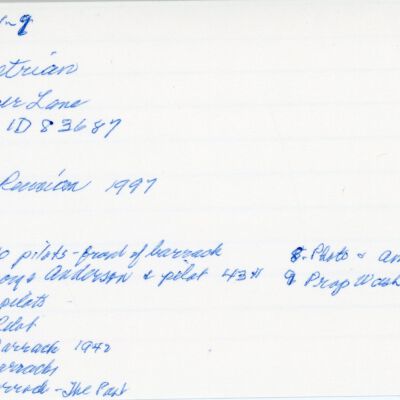 etrian
er Lane
ID 83687
Reunion 1997
o pilots - front of barrack
Anderson & pilot 43
pilots
ilot
arrack 1942
arracks
arrack - The Past
8 - Photo &
9 Prop Wash